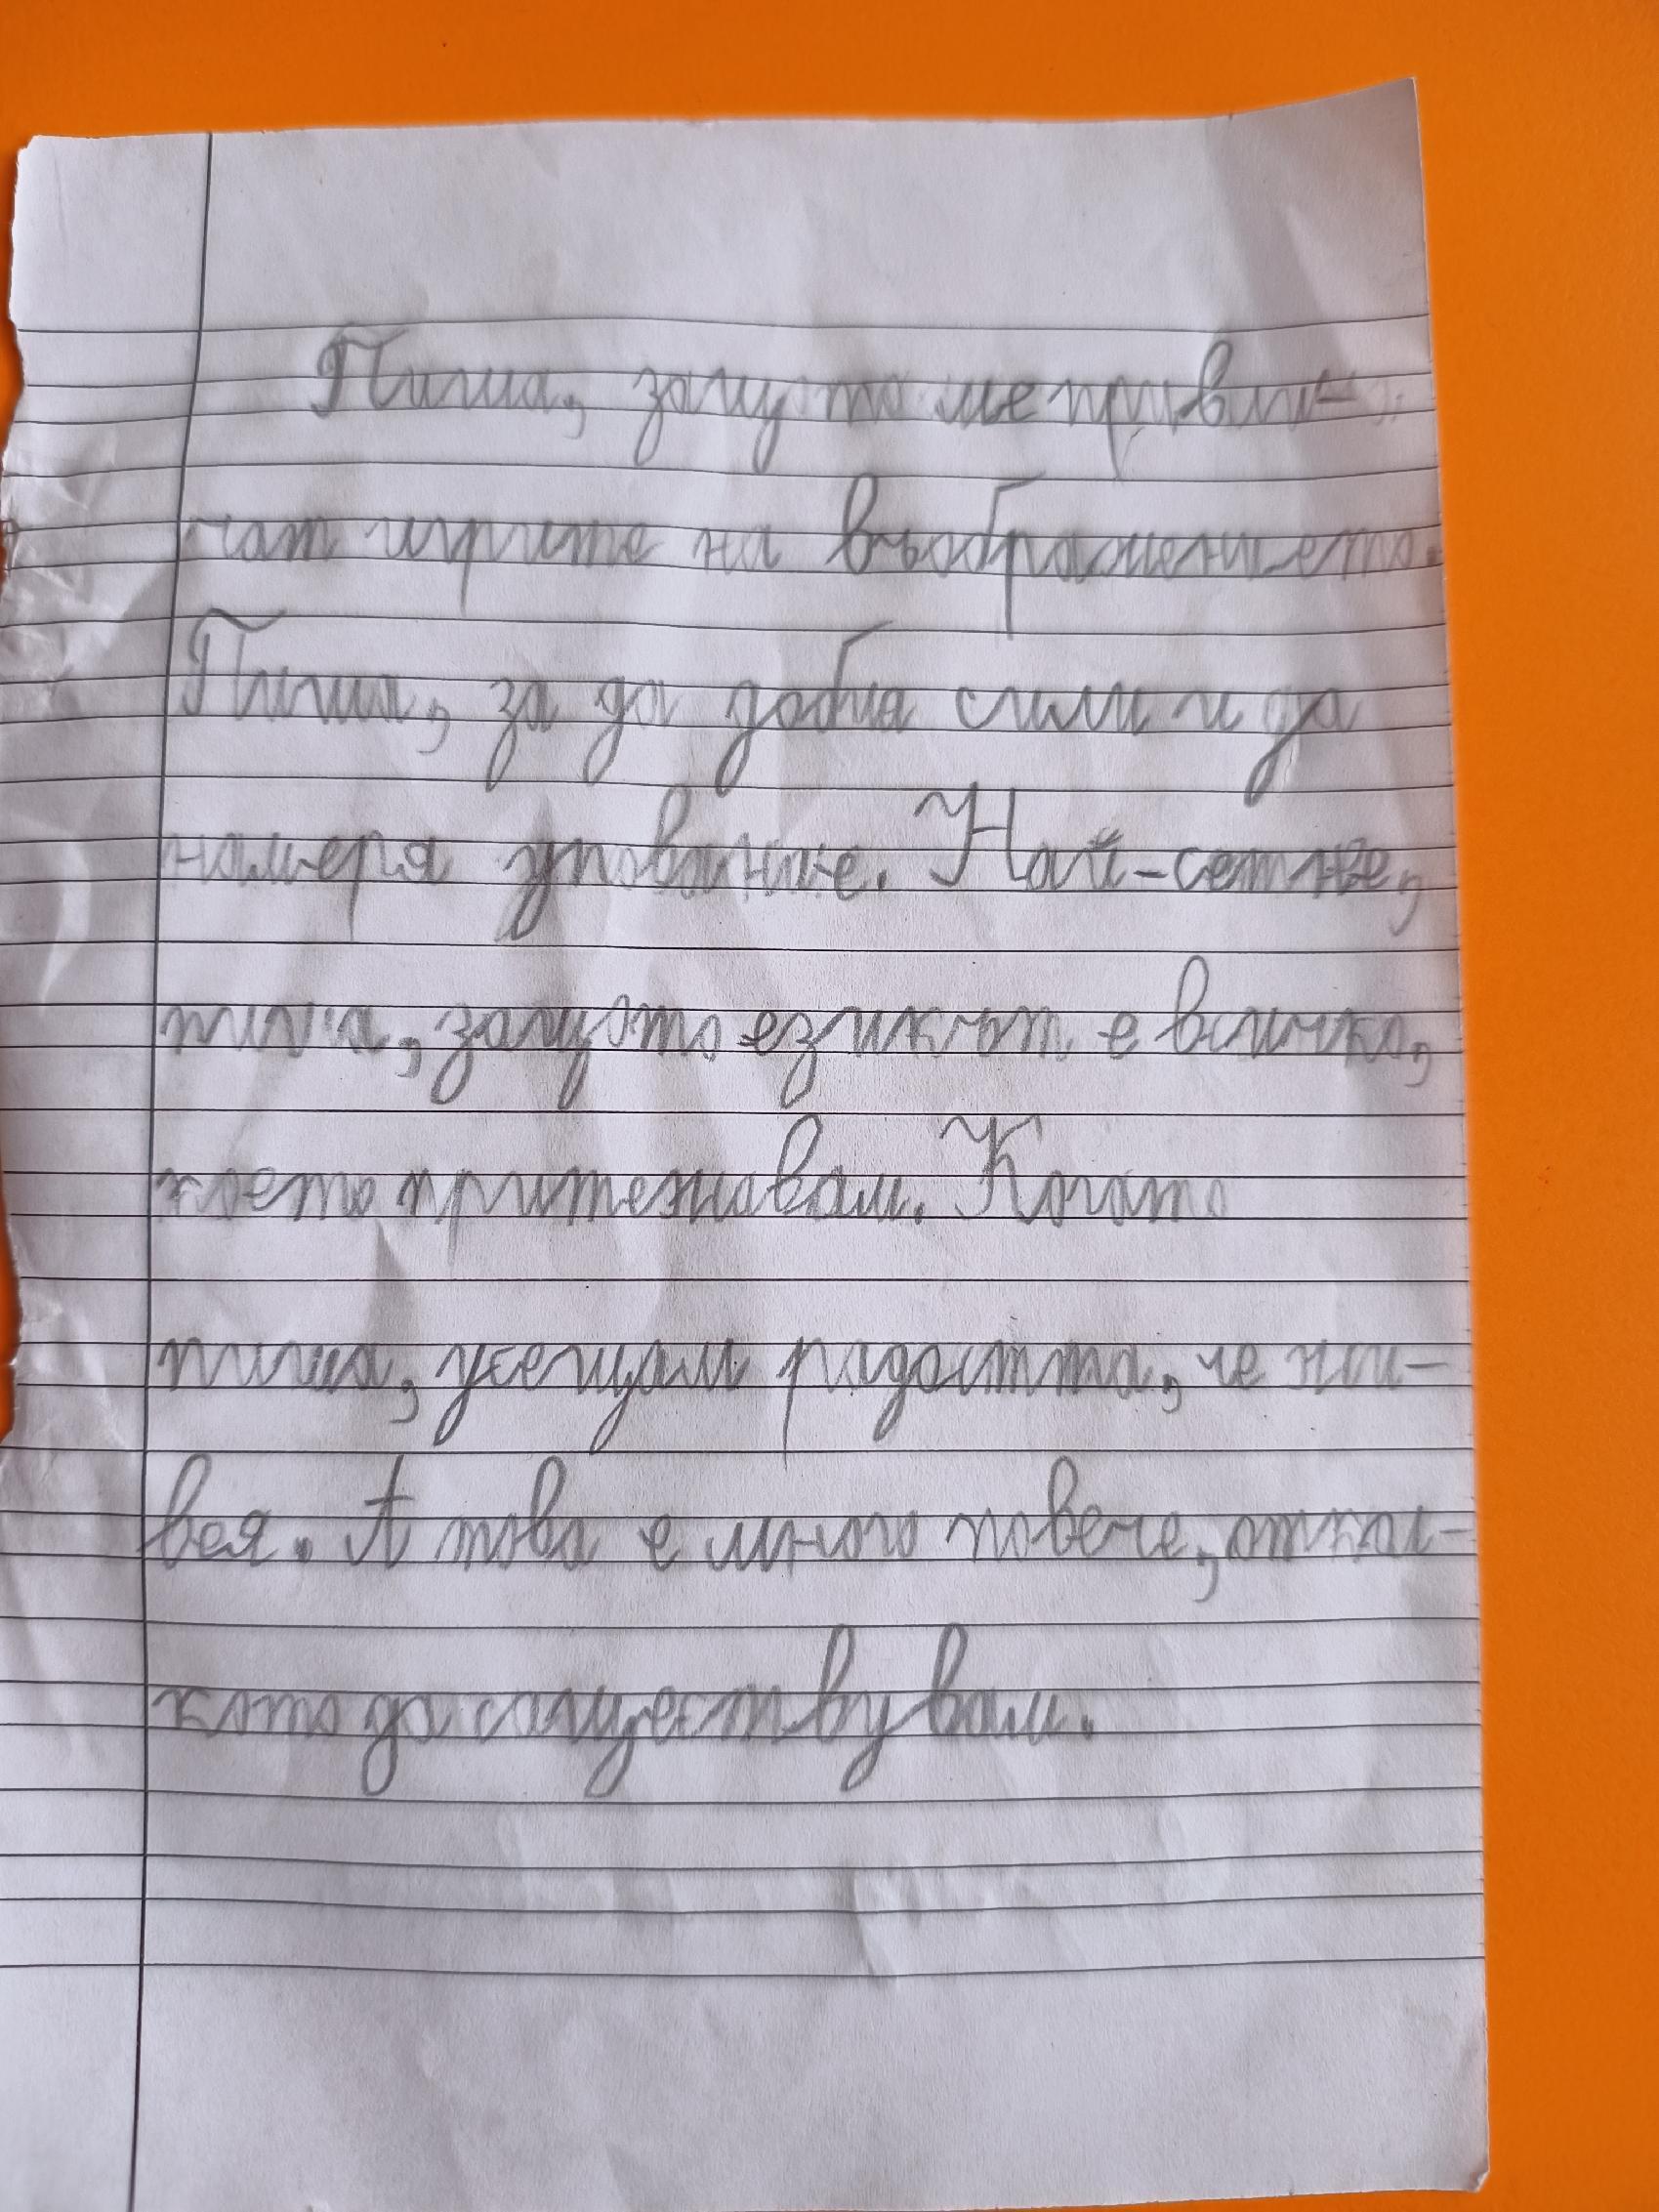 Пиша, защото ме привли-
чат игрите на въображението.
Пиша, за да добия сили и да
намеря упование. Най-сетне,
пиша, защото езикът е всичко,
което притежавам. Когато
пиша, усещам радостта, че жи-
вея. А това е много повече, откол-
кото да съществувам.